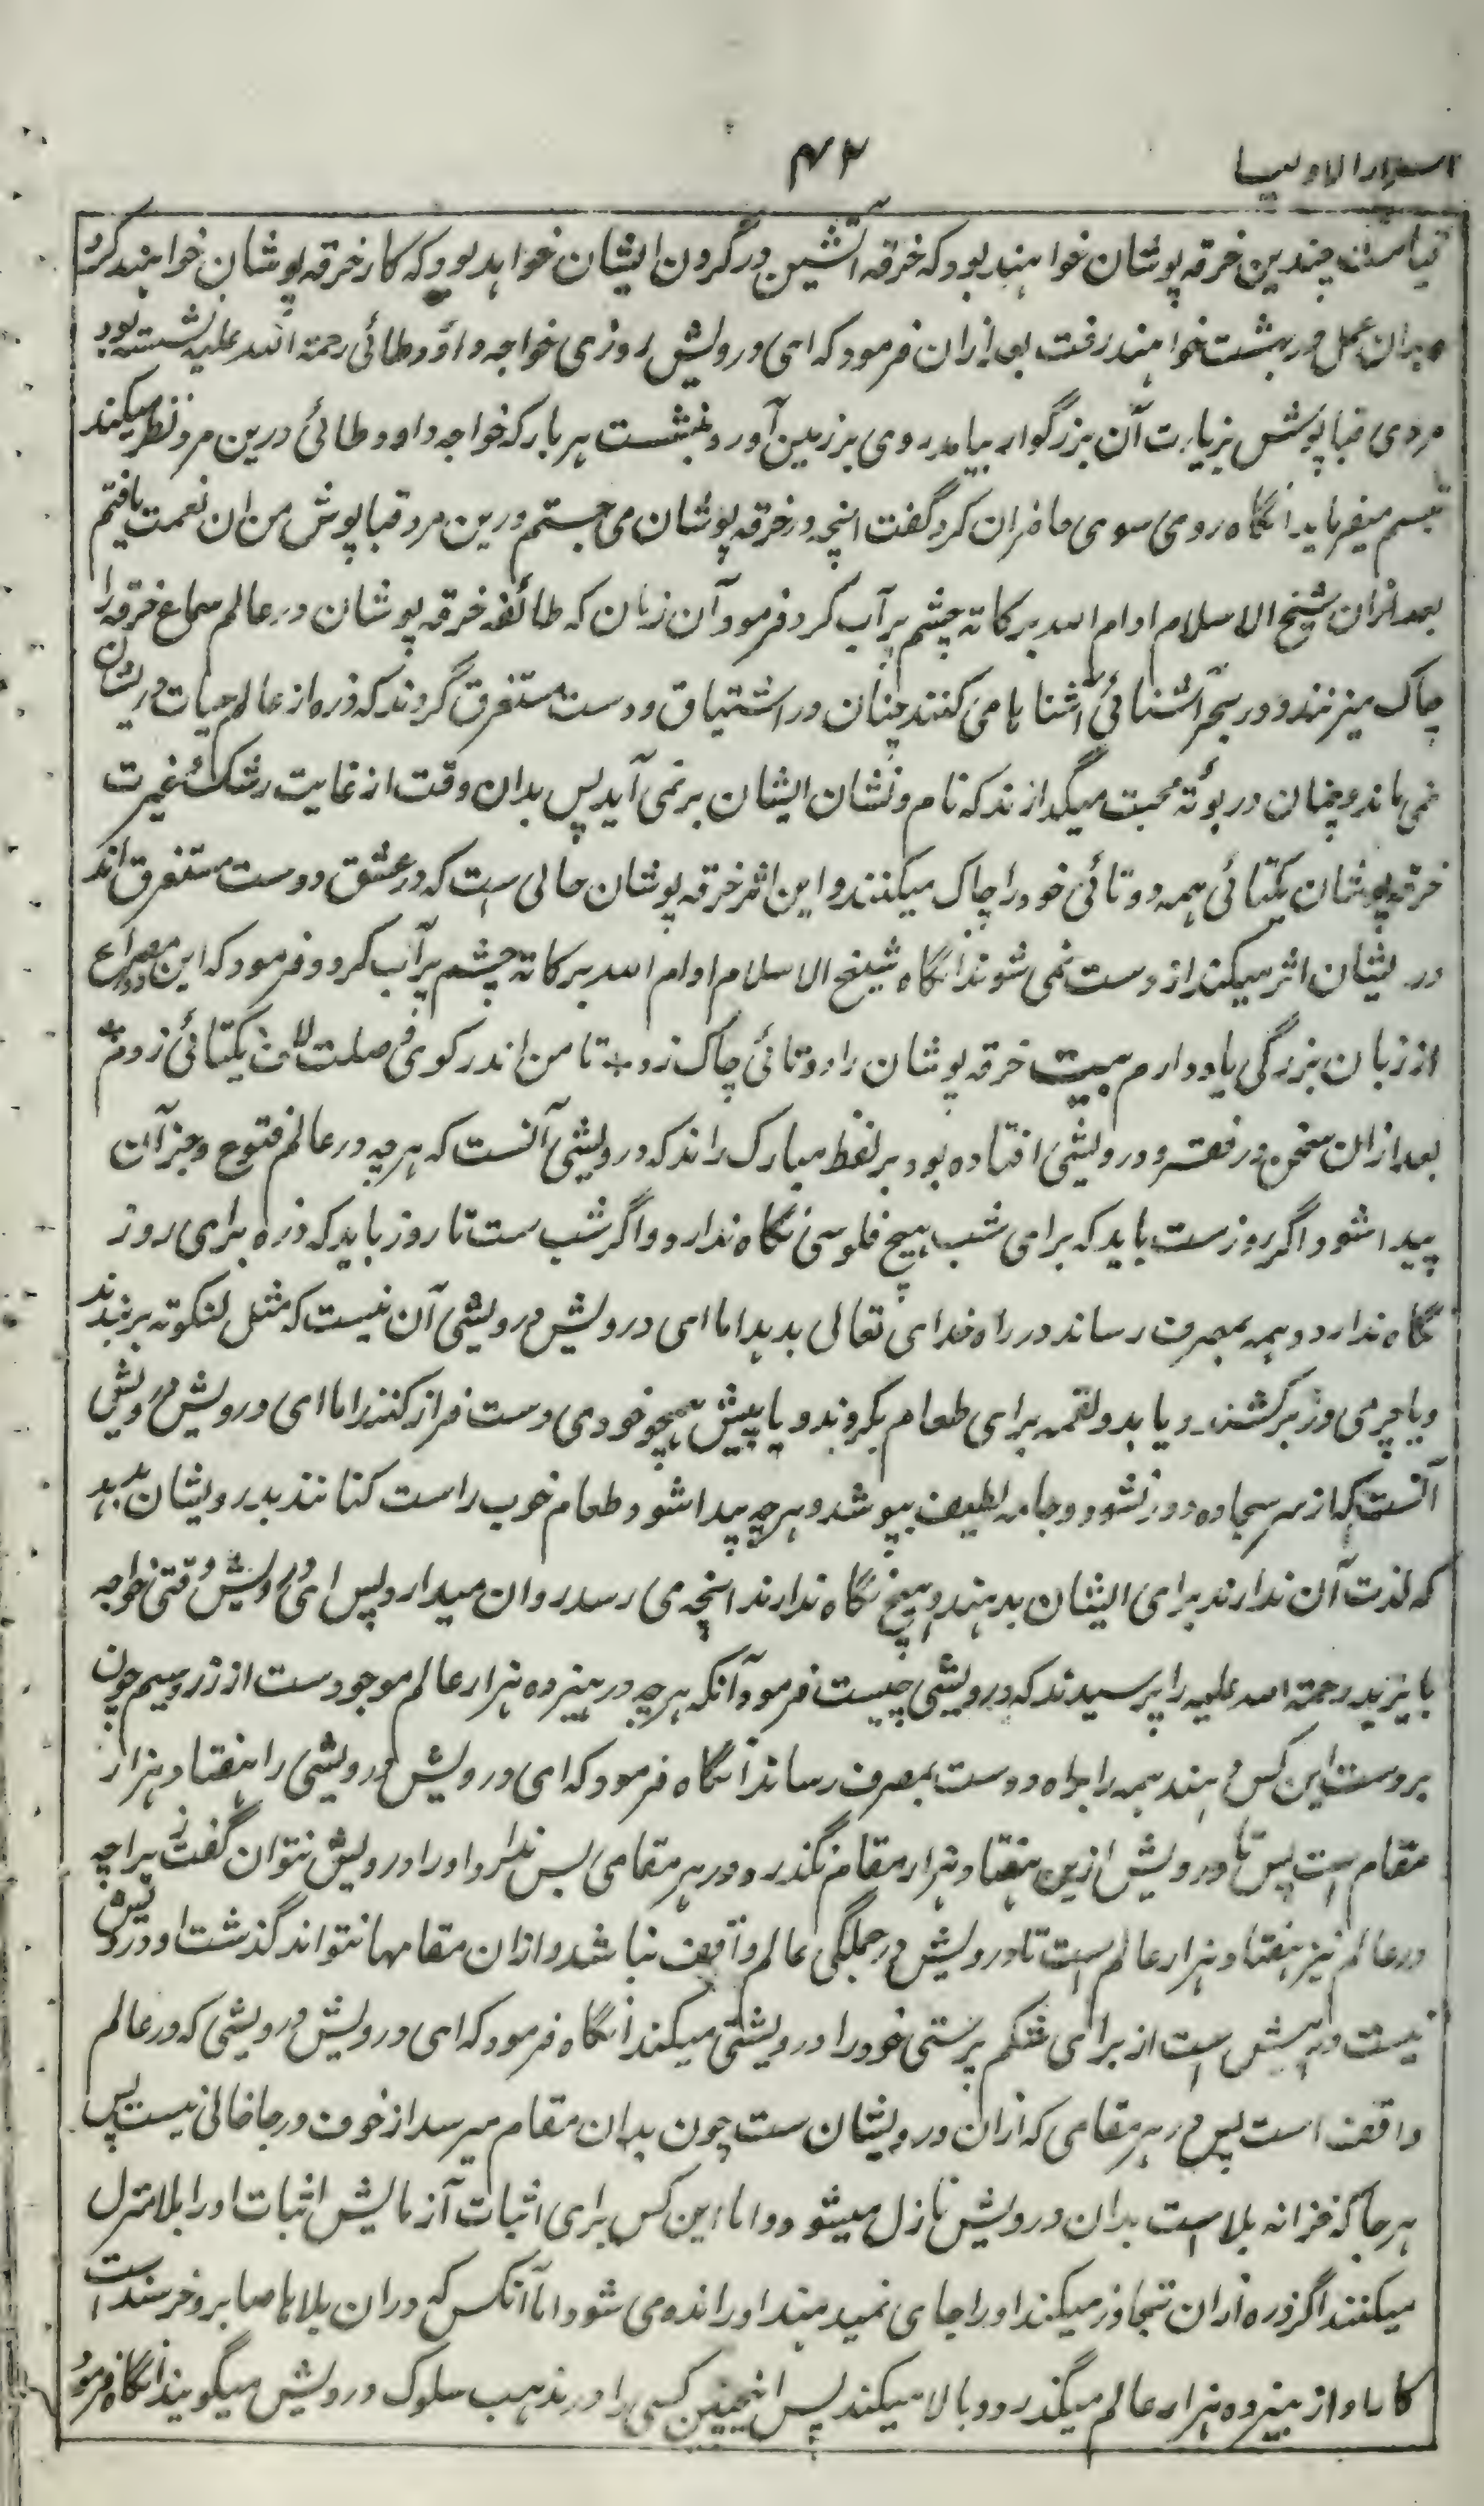 اسرارالاولیا
۴۲
قیامت چندین خرقه پوشان خواهند بود که خرقه آتشین در گردن ایشان خواهد بود که کار خرقه پوشان خواهند کرد
بدان عمل در بهشت خواهند رفت بعد ازان فرمود که ای درویش روزی خواجه داؤد طائی رحمة الله علیه نشسته بود
مردی قبا پوش بزیارت آن بزرگوار بیامد روی بر زمین آورد و بنشست هر بار که خواجه داود طائی درین مرد نظر میکند
تبسم میفرماید انگاه روی سوی حاضران کرد گفت انچه در خرقه پوشان می جستم درین مرد قبا پوش من ان نعمت یافتم
بعد ازان شیخ الاسلام ادام الله برکاته چشم پر آب کرد فرمود آن زمان که طائفه خرقه پوشان در عالم سماع خرقه را
چاک میزنند و در بحر آشنائی آشنا ها می کنند چنان در اشتیاق دوست مستغرق گردند که ذره از عالم حیات در یشان
نمی ماند و چنان در بوته محبت میگدازند که نام و نشان ایشان بر نمی آید پس بدان وقت از غایت رشک و غیرت
خرقه پوشان یکتائی همه دوتائی خود را چاک میکنند و این اثر خرقه پوشان حالی ست که در عشق دوست مستغرق اند
در یشان اثر میکند از دست نمی شوند انگاه شیخ الاسلام ادام الله برکاته چشم پر آب کرد و فرمود که این مصراع
از زبان بزرگی یاد دارم بیت خرقه پوشان را دوتائی چاک زد * تا من اندر کوی وصلت لاف یکتائی زدم *
بعد ازان سخن در فقر و درویشی افتاده بود بر لفظ مبارک راند که درویشی آنست که هر چه در عالم فتوح و جز آن
پیدا شود اگر روز ست باید که برای شب هیچ فلوسی نگاه ندارد و اگر شب ست تا روز باید که ذره برای روز
نگاه ندارد و همه بمصرف رساند در راه خدای تعالی بدهد اما ای درویش درویشی آن نیست که مثل لنکوته بر بندند
و یا چرمی در بر کشند و یا بدو لقمه برای طعام بگروند و یا پیش همچو خودی دست فراز کنند اما ای درویش درویش
آنست که از سر سجاده دور نشود و جامه لطیف بپوشد و هر چه پیدا شود طعام خوب راست کنانند بدرویشان بدهد
که لذت آن ندارند برای ایشان بدهند و هیچ نگاه ندارند انچه می رسد روان میدارد پس ای درویش وقتی خواجه
بایزید رحمة الله علیه را پرسیدند که درویشی چیست فرمود آنکه هر چه در هیزده هزار عالم موجود ست از زر و سیم چون
بر دست این کس دهند همه را براه دوست بمصرف رساند انگاه فرمود که ای درویش درویشی را هفتاد هزار
مقام است پس تا درویش ازین هفتاد هزار مقام نگذرد و در هر مقامی بس ندارد او را درویش نتوان گفت زیراچه
در عالم نیز هفتاد هزار عالم است تا درویش در جملگی عالم واقف نباشد و ازان مقامها نتواند گذشت او درویش
نیست از برای شکم پرستی خود را درویشی میکند انگاه فرمود که ای درویش درویشی که در عالم
واقف است پس در هر مقامی که ازان درویشان ست چون بدان مقام میرسد از خوف و رجا خالی نیست پس
هر جا که خزانه بلا است بدان درویش نازل میشود و اما این کس برای اثبات آزمایش اثبات او را بلا منزل
میکنند اگر ذره ازان تجاوز میکند او را جای نمیدهند او رانده می شود اما آنکس که دران بلاها صابر و خرسند است
کار او از هیزده هزار عالم میگذرد و بالا میکند پس اینچنین کسی را در مذهب سلوک درویش میگویند انگاه فرمود